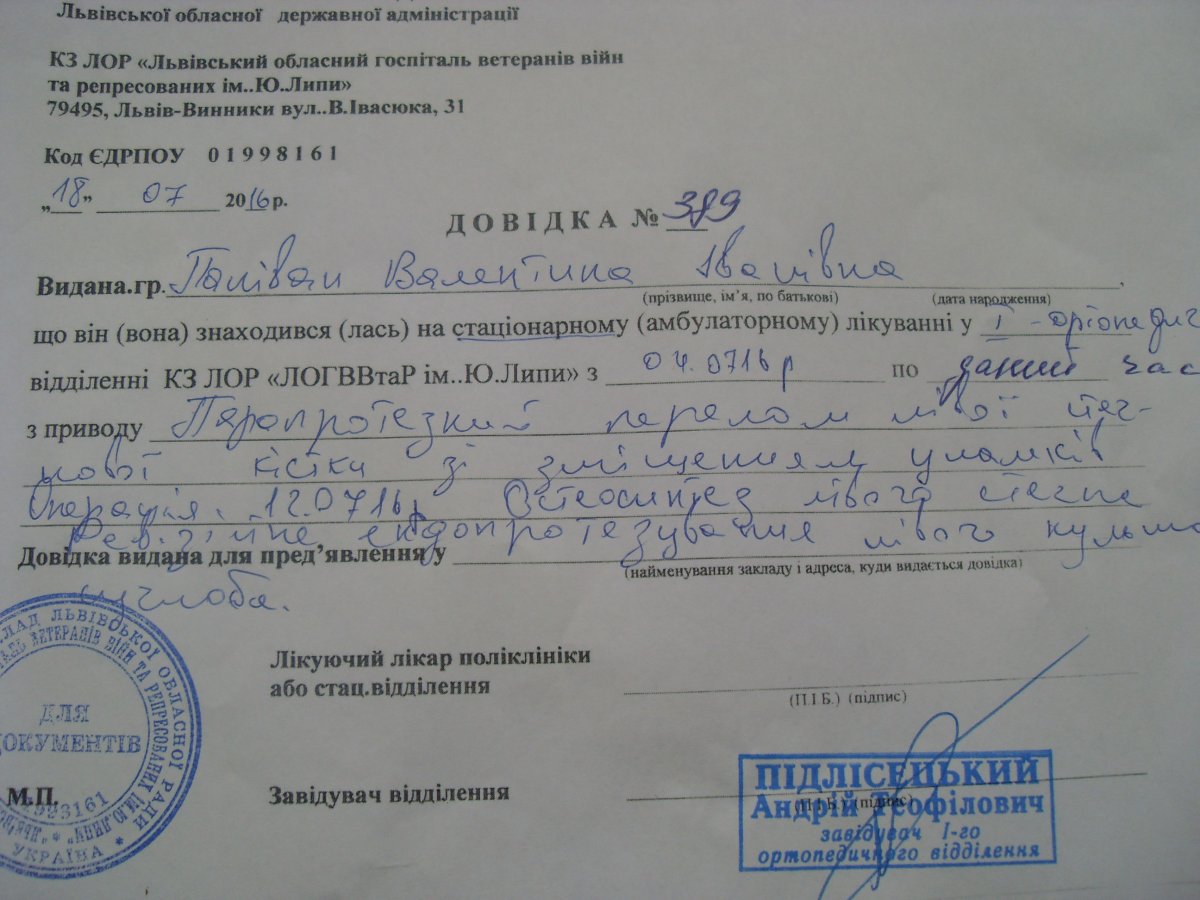 Львівської обласної державної адміністрації
КЗ ЛОР «Львівський обласний госпіталь ветеранів війн
та репресованих ім..Ю.Липи»
79495, Львів-Винники вул..В.Івасюка, 31
Код ЄДРПОУ 01998161
„18" 07 2016 р.
ДОВІДКА № 389
Видана.гр. Паліван Валентина Іванівна,
(прізвище, ім’я, по батькові) (дата народження)
що він (вона) знаходився (лась) на стаціонарному (амбулаторному) лікуванні у І -ортопедич
відділенні КЗ ЛОР «ЛОГВВтаР ім..Ю.Липи» з 04.0716р по даний час
з приводу Парапротезний перелом лівої стег-
нової кістки зі зміщенням уламків
Операція. 12.0716р Остеосинтез лівого стегна
Ревізійне ендопротезування лівого кульш
Довідка видана для пред’явлення у
(найменування закладу і адреса, куди видається довідка)
суглоба.
Лікуючий лікар поліклініки
або стац.відділення
(П.І.Б.) (підпис)
ДЛЯ
ДОКУМЕНТІВ
УКРАЇНА
М.П.
Завідувач відділення
(П.І.Б.) (підпис)
ПІДЛІСЕЦЬКИЙ
Андрій Теофілович
завідувач І-го
ортопедичного відділення